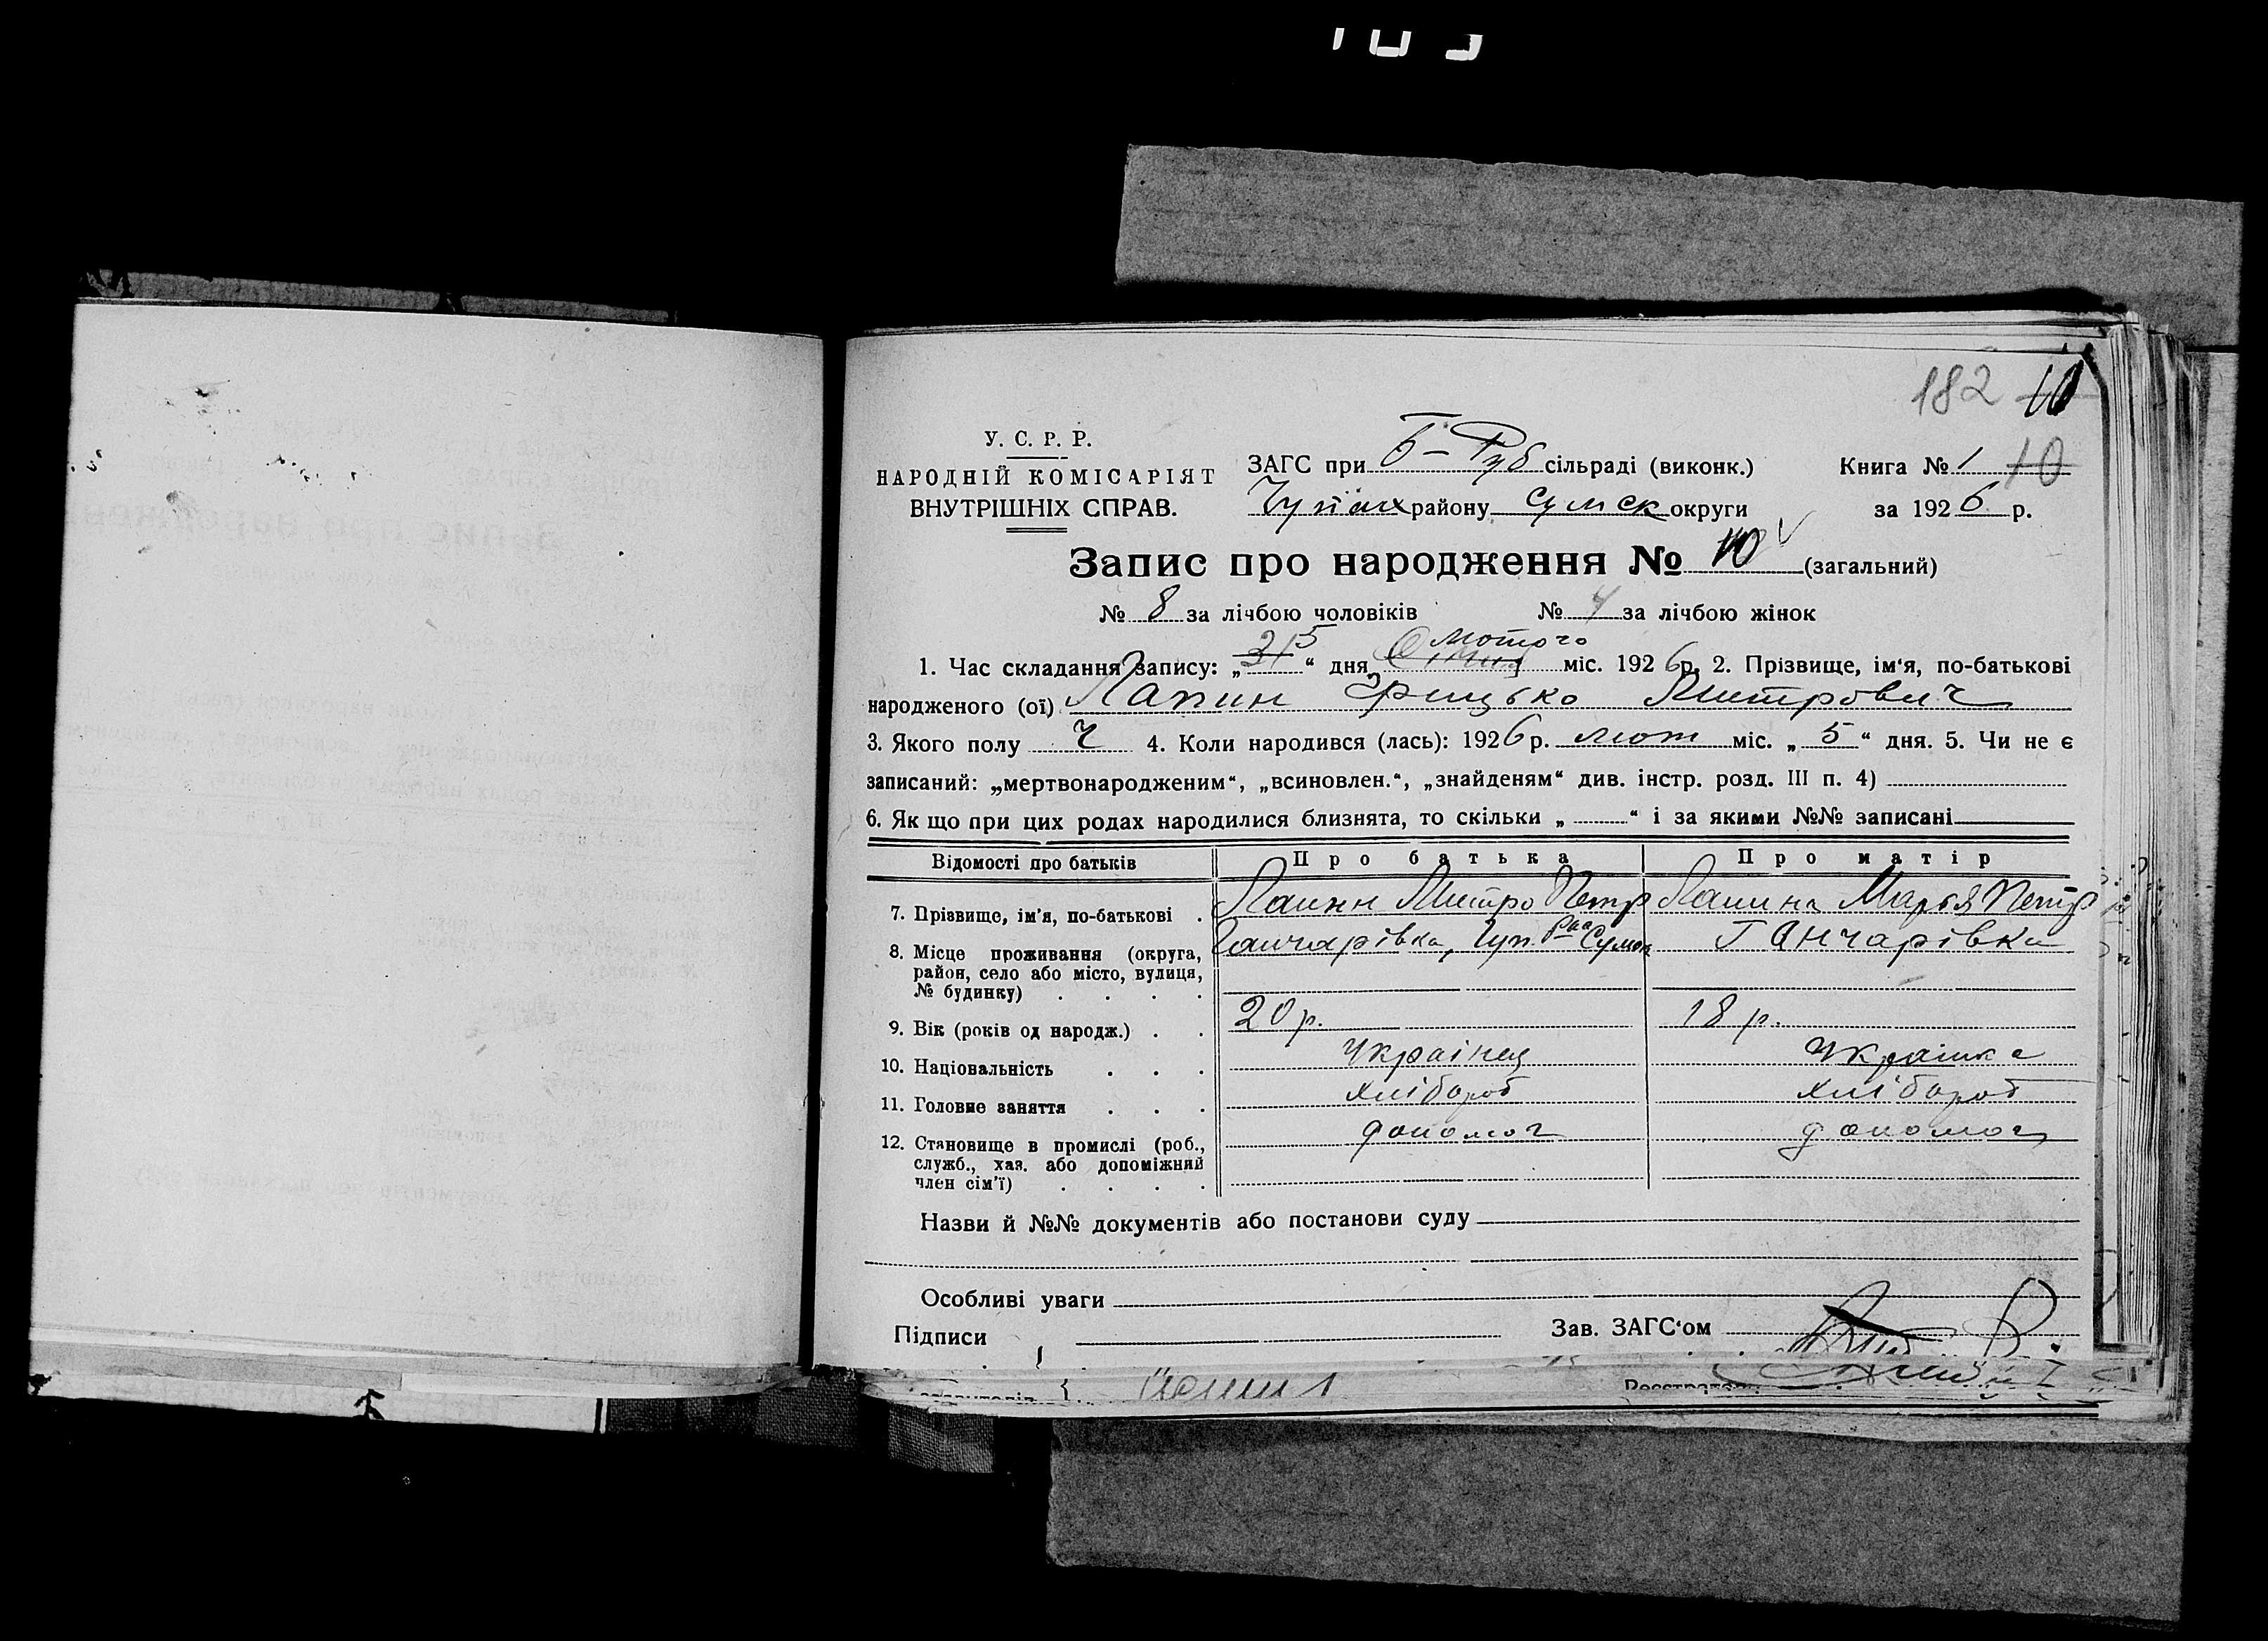 182 10
У. С. Р. Р.
НАРОДНІЙ КОМІСАРІЯТ
ВНУТРІШНІХ СПРАВ.
ЗАГС при Б-Руб сільраді (виконк.) Книга № 1 10
Чупах району Сумск округи за 1926 р.
Запис про народження № 10 (загальний)
№ 8 за лічбою чоловіків № за лічбою жінок
лютого
1. Час складання запису: „ 5 “ дня міс. 1926 р. 2. Прізвище, ім‘я, по-батькові
народженого (ої) Лапин Грицько Митрович
3. Якого полу Ч 4. Коли народився (лась): 1926 р. лют міс. „ 5 “ дня. 5. Чи не є
записаний: „мертвонародженим“, „всиновлен.“, „знайденям“ див. інстр. розд. III п. 4)
6. Як що при цих родах народилися близнята, то скільки „ “ і за якими №№ записані
Відомості про батьків Про батька Про матір
7. Прізвище, ім’я, по-батькові . Лапин Митро Петр Лапина Марья Петр
8. Місце проживання (округа, Ганчарівка, Чуп. р-на Сумск Ганчарівка
район, село або місто, вулиця,
№ будинку) . . . .
9. Вік (років од народж.) . . 20 р. 18 р.
10. Національність . . . Українец Украінка
11. Головне заняття . . . хлібороб хлібороб
12. Становище в промислі (роб., допомог допомог
служб., хаз. або допоміжний
член сім’ї) . . . .
Назви й №№ документів або постанови суду
Особливі уваги
Підписи Зав. ЗАГС‘ом